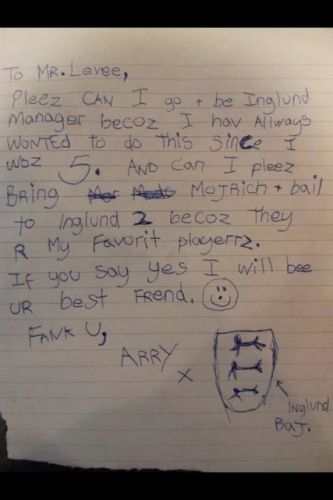 To MR. Levee,
Pleez CAN I go + be Inglund
Manager becoz I hav Allways
WONTED to do this since I
woz 5. AND can I pleez
BRing Mojrich + bail
to Inglund 2 becoz They
R My Favorit playerrz.
If you say yes I will bee
UR best FREND.
FANK U,
ARRY x
Inglund
BaJ.